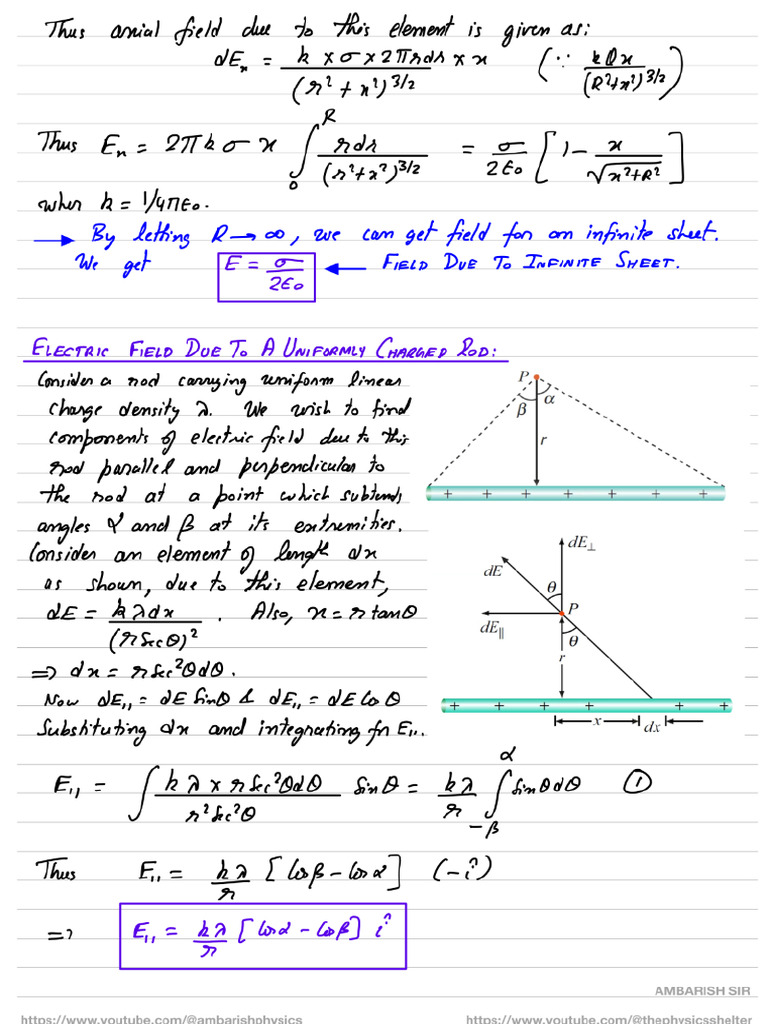 Thus axial field due to this element is given as:
dEₓ = k × σ × 2πrdr × x / (r² + x²)^3/2 (∵ kQx / (R²+x²)^3/2)
Thus Eₓ = 2πkσx ∫₀^R rdr / (r²+x²)^3/2 = σ/2ε₀ [1 - x/√(x²+R²)]
when k = 1/4πε₀.
→ By letting R → ∞, we can get field for an infinite sheet.
We get E = σ/2ε₀ ← FIELD DUE TO INFINITE SHEET.
ELECTRIC FIELD DUE TO A UNIFORMLY CHARGED ROD:
Consider a rod carrying uniform linear
charge density λ. We wish to find
components of electric field due to this
rod parallel and perpendicular to
the rod at a point which subtends
angles α and β at its extremities.
P
β α
r
+ + + + + + +
Consider an element of length dx
as shown, due to this element,
dE = kλdx / (rSecθ)² . Also, x = rtanθ
⇒ dx = rSec²θdθ.
Now dE₁₁ = dE Sinθ & dE₁₁ = dE Cosθ
Substituting dx and integrating for E₁₁.
dE⊥
dE
θ
P
dE∥
θ
r
+ + + + + +
x dx
E₁₁ = ∫ kλ × rSec²θdθ / r²Sec²θ Sinθ = kλ/r ∫₋β^α Sinθdθ ①
Thus E₁₁ = kλ/r [Cosβ - Cosα] (-î)
⇒ E₁₁ = kλ/r [Cosα - Cosβ] î
AMBARISH SIR
https://www.youtube.com/@ambarishphysics https://www.youtube.com/@thephysicsshelter